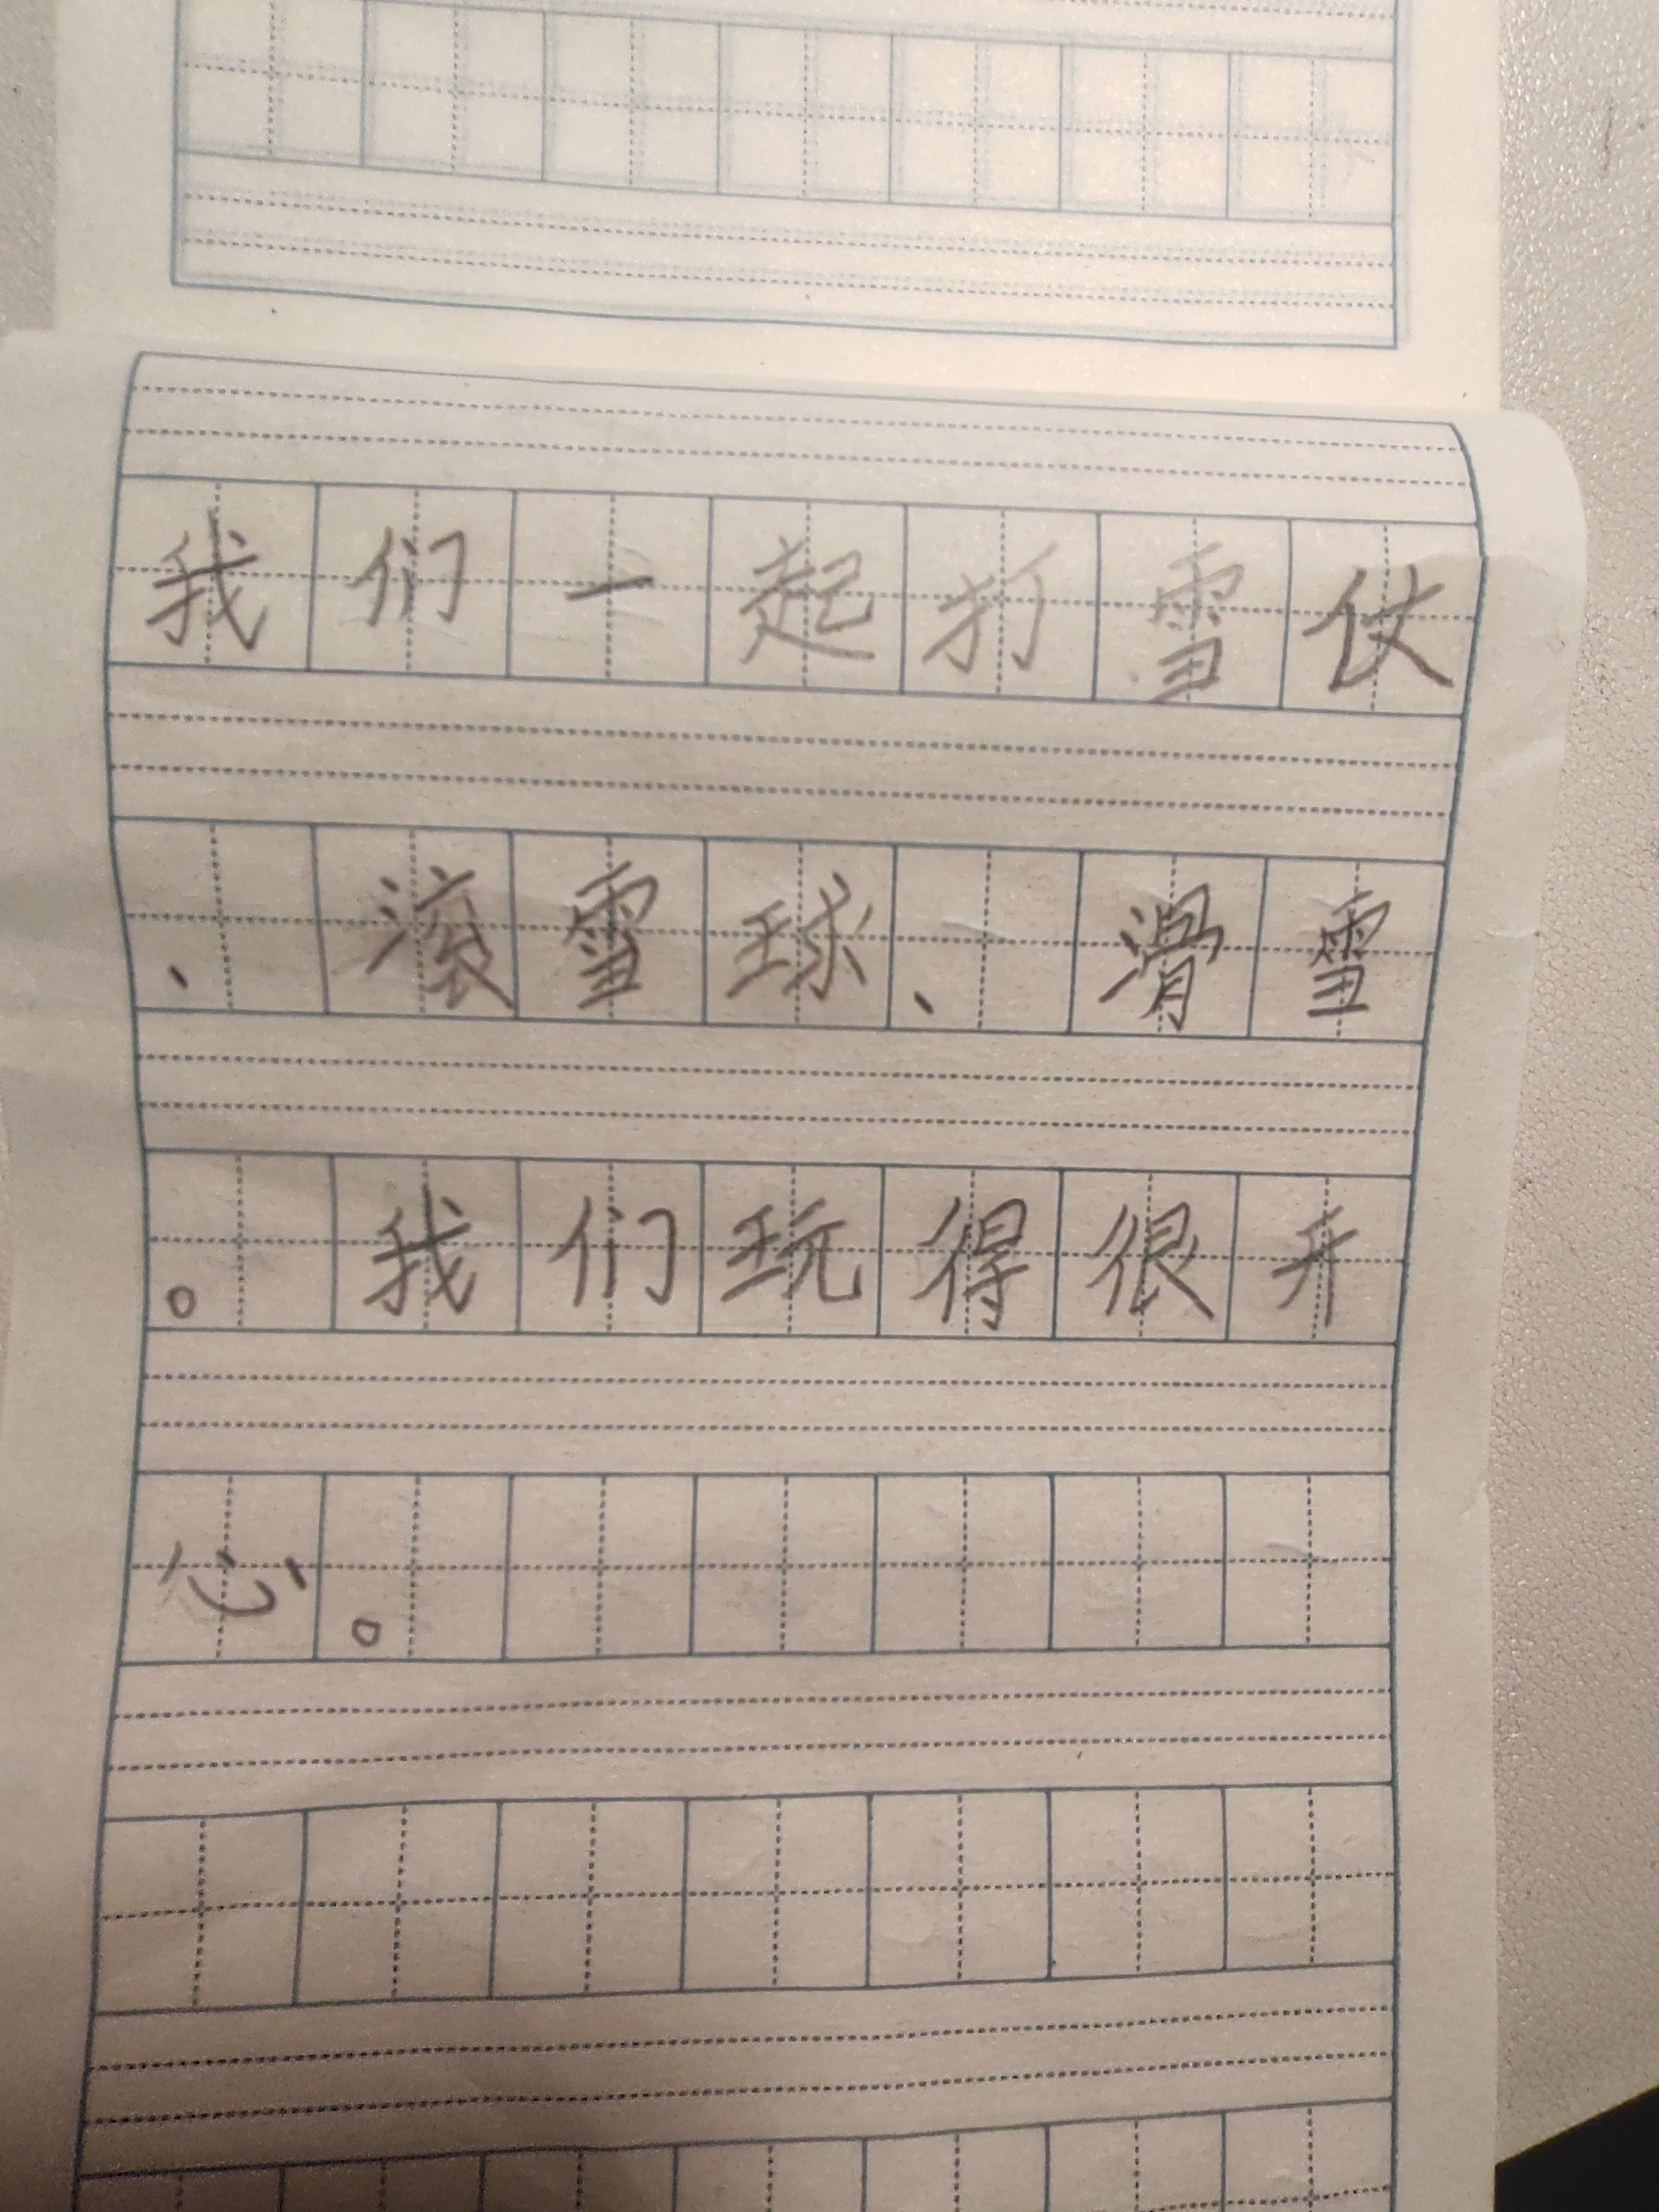 我们一起打雪仗
、滚雪球、滑雪
。我们玩得很开
心。